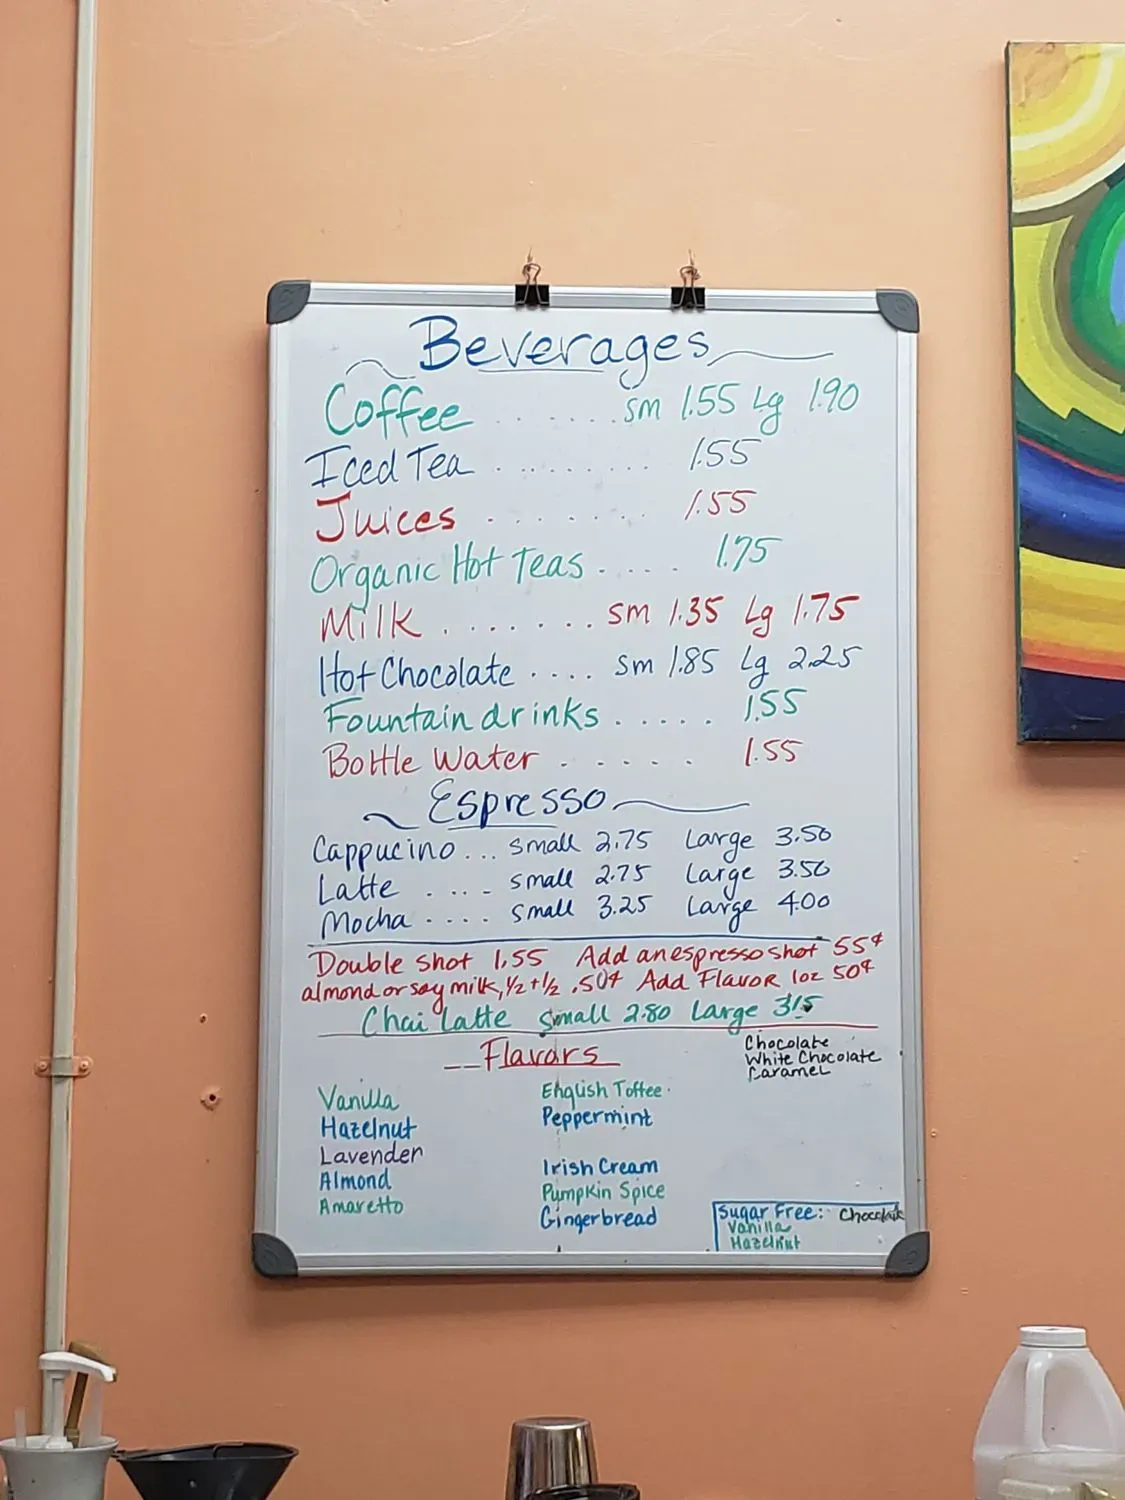 Beverages
Coffee ...... sm 1.55 Lg 1.90
Iced Tea ......... 1.55
Juices ....... 1.55
Organic Hot Teas .... 1.75
Milk ....... sm 1.35 Lg 1.75
Hot Chocolate .... sm 1.85 Lg 2.25
Fountain drinks ..... 1.55
Bottle Water ..... 1.55
Espresso
Cappucino ... small 2.75 Large 3.50
Latte .... small 2.75 Large 3.50
Mocha .... small 3.25 Large 4.00
Double shot 1.55 Add an espresso shot 55¢
almond or soy milk, 1/2+1/2 .50¢ Add Flavor 1oz 50¢
Chai Latte small 2.80 Large 3.15
Flavors
Chocolate
White Chocolate
Caramel
Vanilla
Hazelnut
Lavender
Almond
Amaretto
English Toffee
Peppermint
Irish Cream
Pumpkin Spice
Gingerbread
Sugar Free: Chocolate
Vanilla
Hazelnut